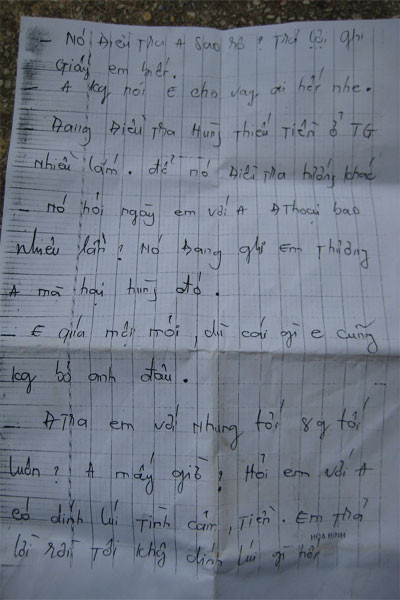 - Nó Điều Tra A sao rồ? Trả lời ghi
Giấy em biết.
- A kg nói E cho vay ai hết nhe.
- Đang Điều Tra Hưng thiếu Tiền ở TG
Nhiều lắm. để nó Điều Tra hướng khác
- Nó hỏi ngày em với A Đthoại bao
nhiêu lần? Nó Đang nghi Em Thương
A mà hại hưng đó.
- E qúa mệt mỏi, dù cái gì e cũng
kg bỏ anh đâu.
- ĐTra em với Nhung tối 8g tối
luôn? A mấy giờ? Hỏi em với A
có dính líu Tình cảm, Tiền. Em Trả
lời rồi Tôi khg dính líu gì hết
HÒA NINH